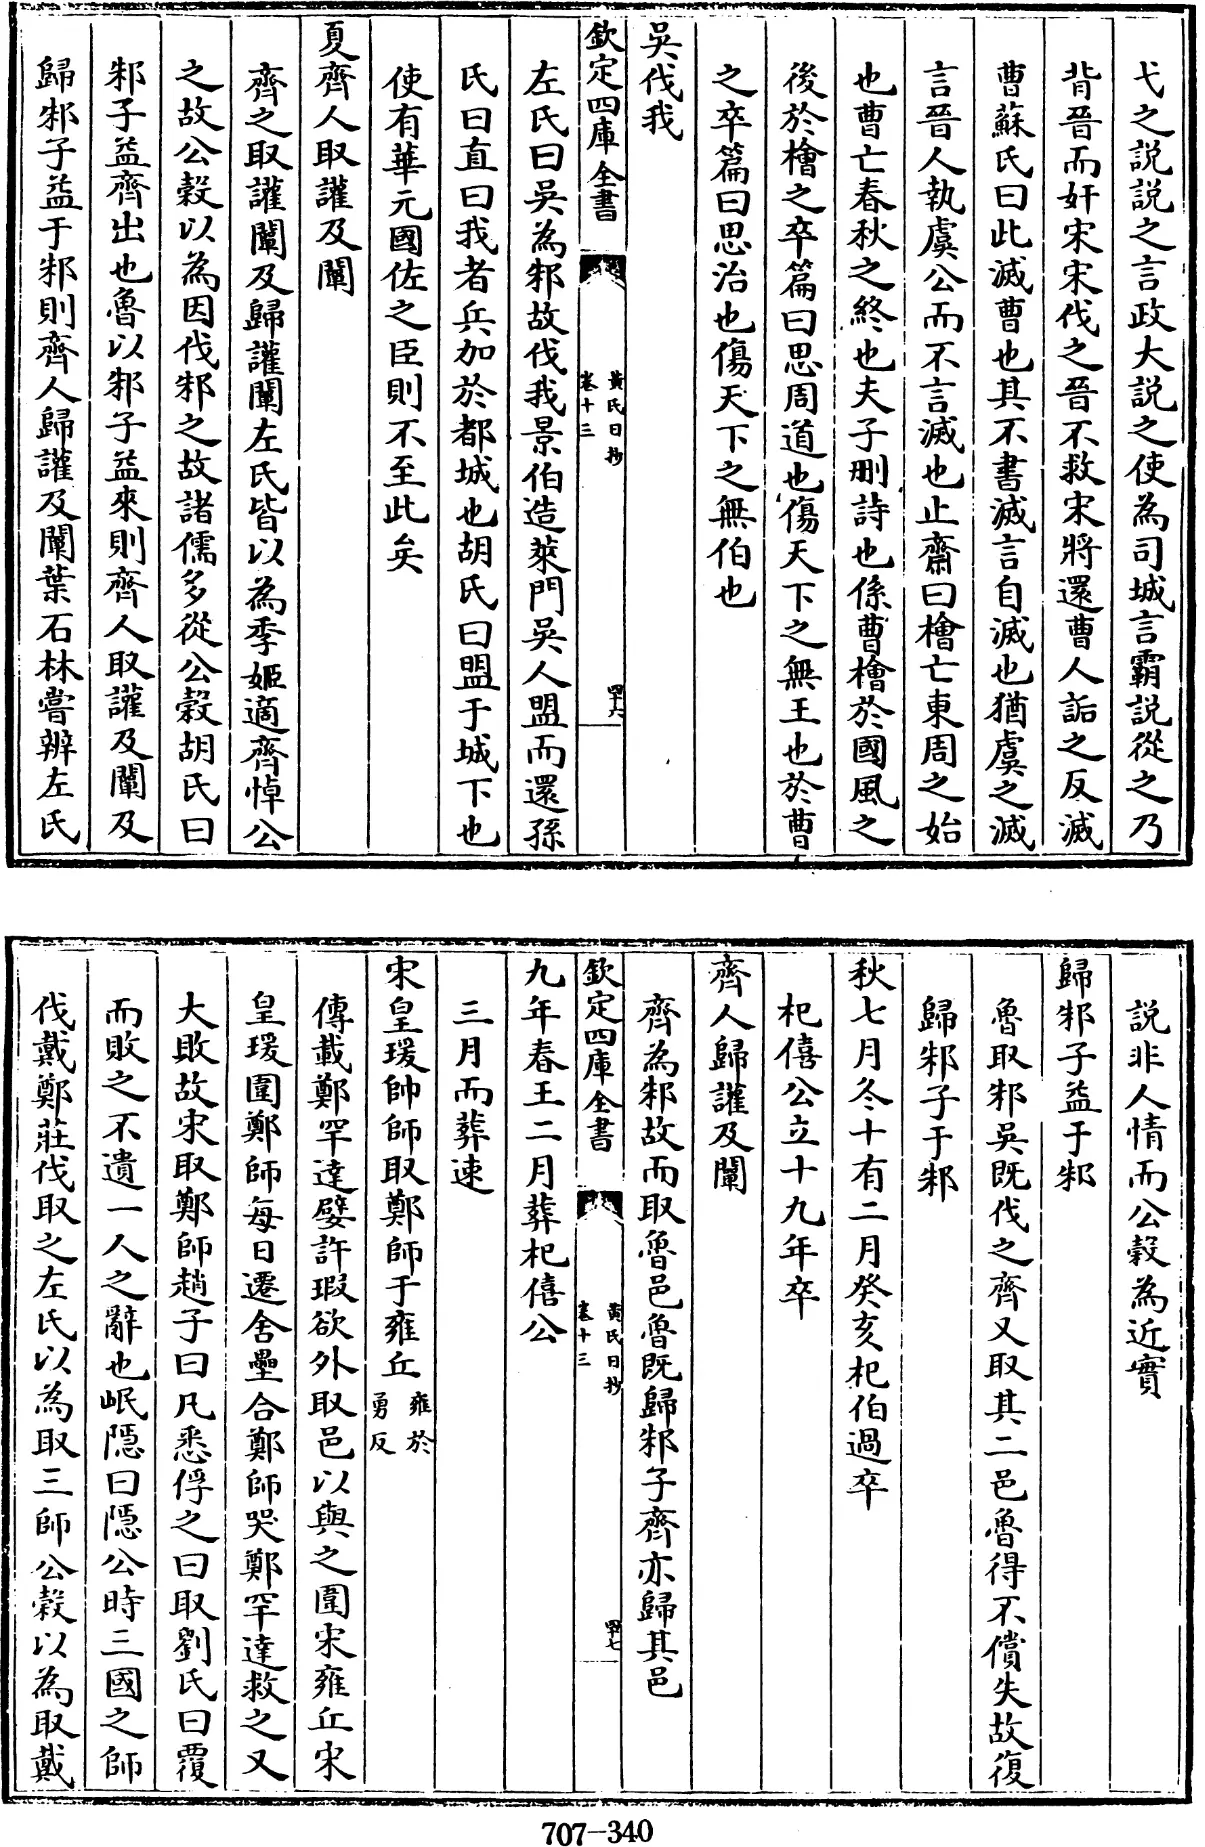 弋之説説之言政大説之使為司城言霸説從之乃
背晉而奸宋宋伐之晉不救宋將還曹人詬之反滅
曹蘇氏曰此滅曹也其不書滅言自滅也猶虞之滅
言晉人執虞公而不言滅也止齋曰檜亡東周之始
也曹亡春秋之終也夫子刪詩也係曹檜於國風之
後於檜之卒篇曰思周道也傷天下之無王也於曹
之卒篇曰思治也傷天下之無伯也
吳伐我
欽定四庫全書
黃氏日抄
卷十三
四十六
左氏曰吳為邾故伐我景伯造萊門吳人盟而還孫
氏曰直曰我者兵加於都城也胡氏曰盟于城下也
使有華元國佐之臣則不至此矣
夏齊人取讙及闡
齊之取讙闡及歸讙闡左氏皆以為季姬適齊悼公
之故公糓以為因伐邾之故諸儒多從公糓胡氏曰
邾子益齊出也魯以邾子益來則齊人取讙及闡及
歸邾子益于邾則齊人歸讙及闡葉石林嘗辨左氏
説非人情而公糓為近實
歸邾子益于邾
魯取邾吳既伐之齊又取其二邑魯得不償失故復
歸邾子于邾
秋七月冬十有二月癸亥杞伯過卒
杞僖公立十九年卒
齊人歸讙及闡
齊為邾故而取魯邑魯既歸邾子齊亦歸其邑
欽定四庫全書
黃氏日抄
卷十三
四十七
九年春王二月葬杞僖公
三月而葬速
宋皇瑗帥師取鄭師于雍丘雍於勇反
傳載鄭罕達嬖許瑕欲外取邑以與之圍宋雍丘宋
皇瑗圍鄭師每日遷舍壘合鄭師哭鄭罕達救之又
大敗故宋取鄭師趙子曰凡悉俘之曰取劉氏曰覆
而敗之不遺一人之辭也岷隱曰隱公時三國之師
伐戴鄭莊伐取之左氏以為取三師公糓以為取戴
707-340